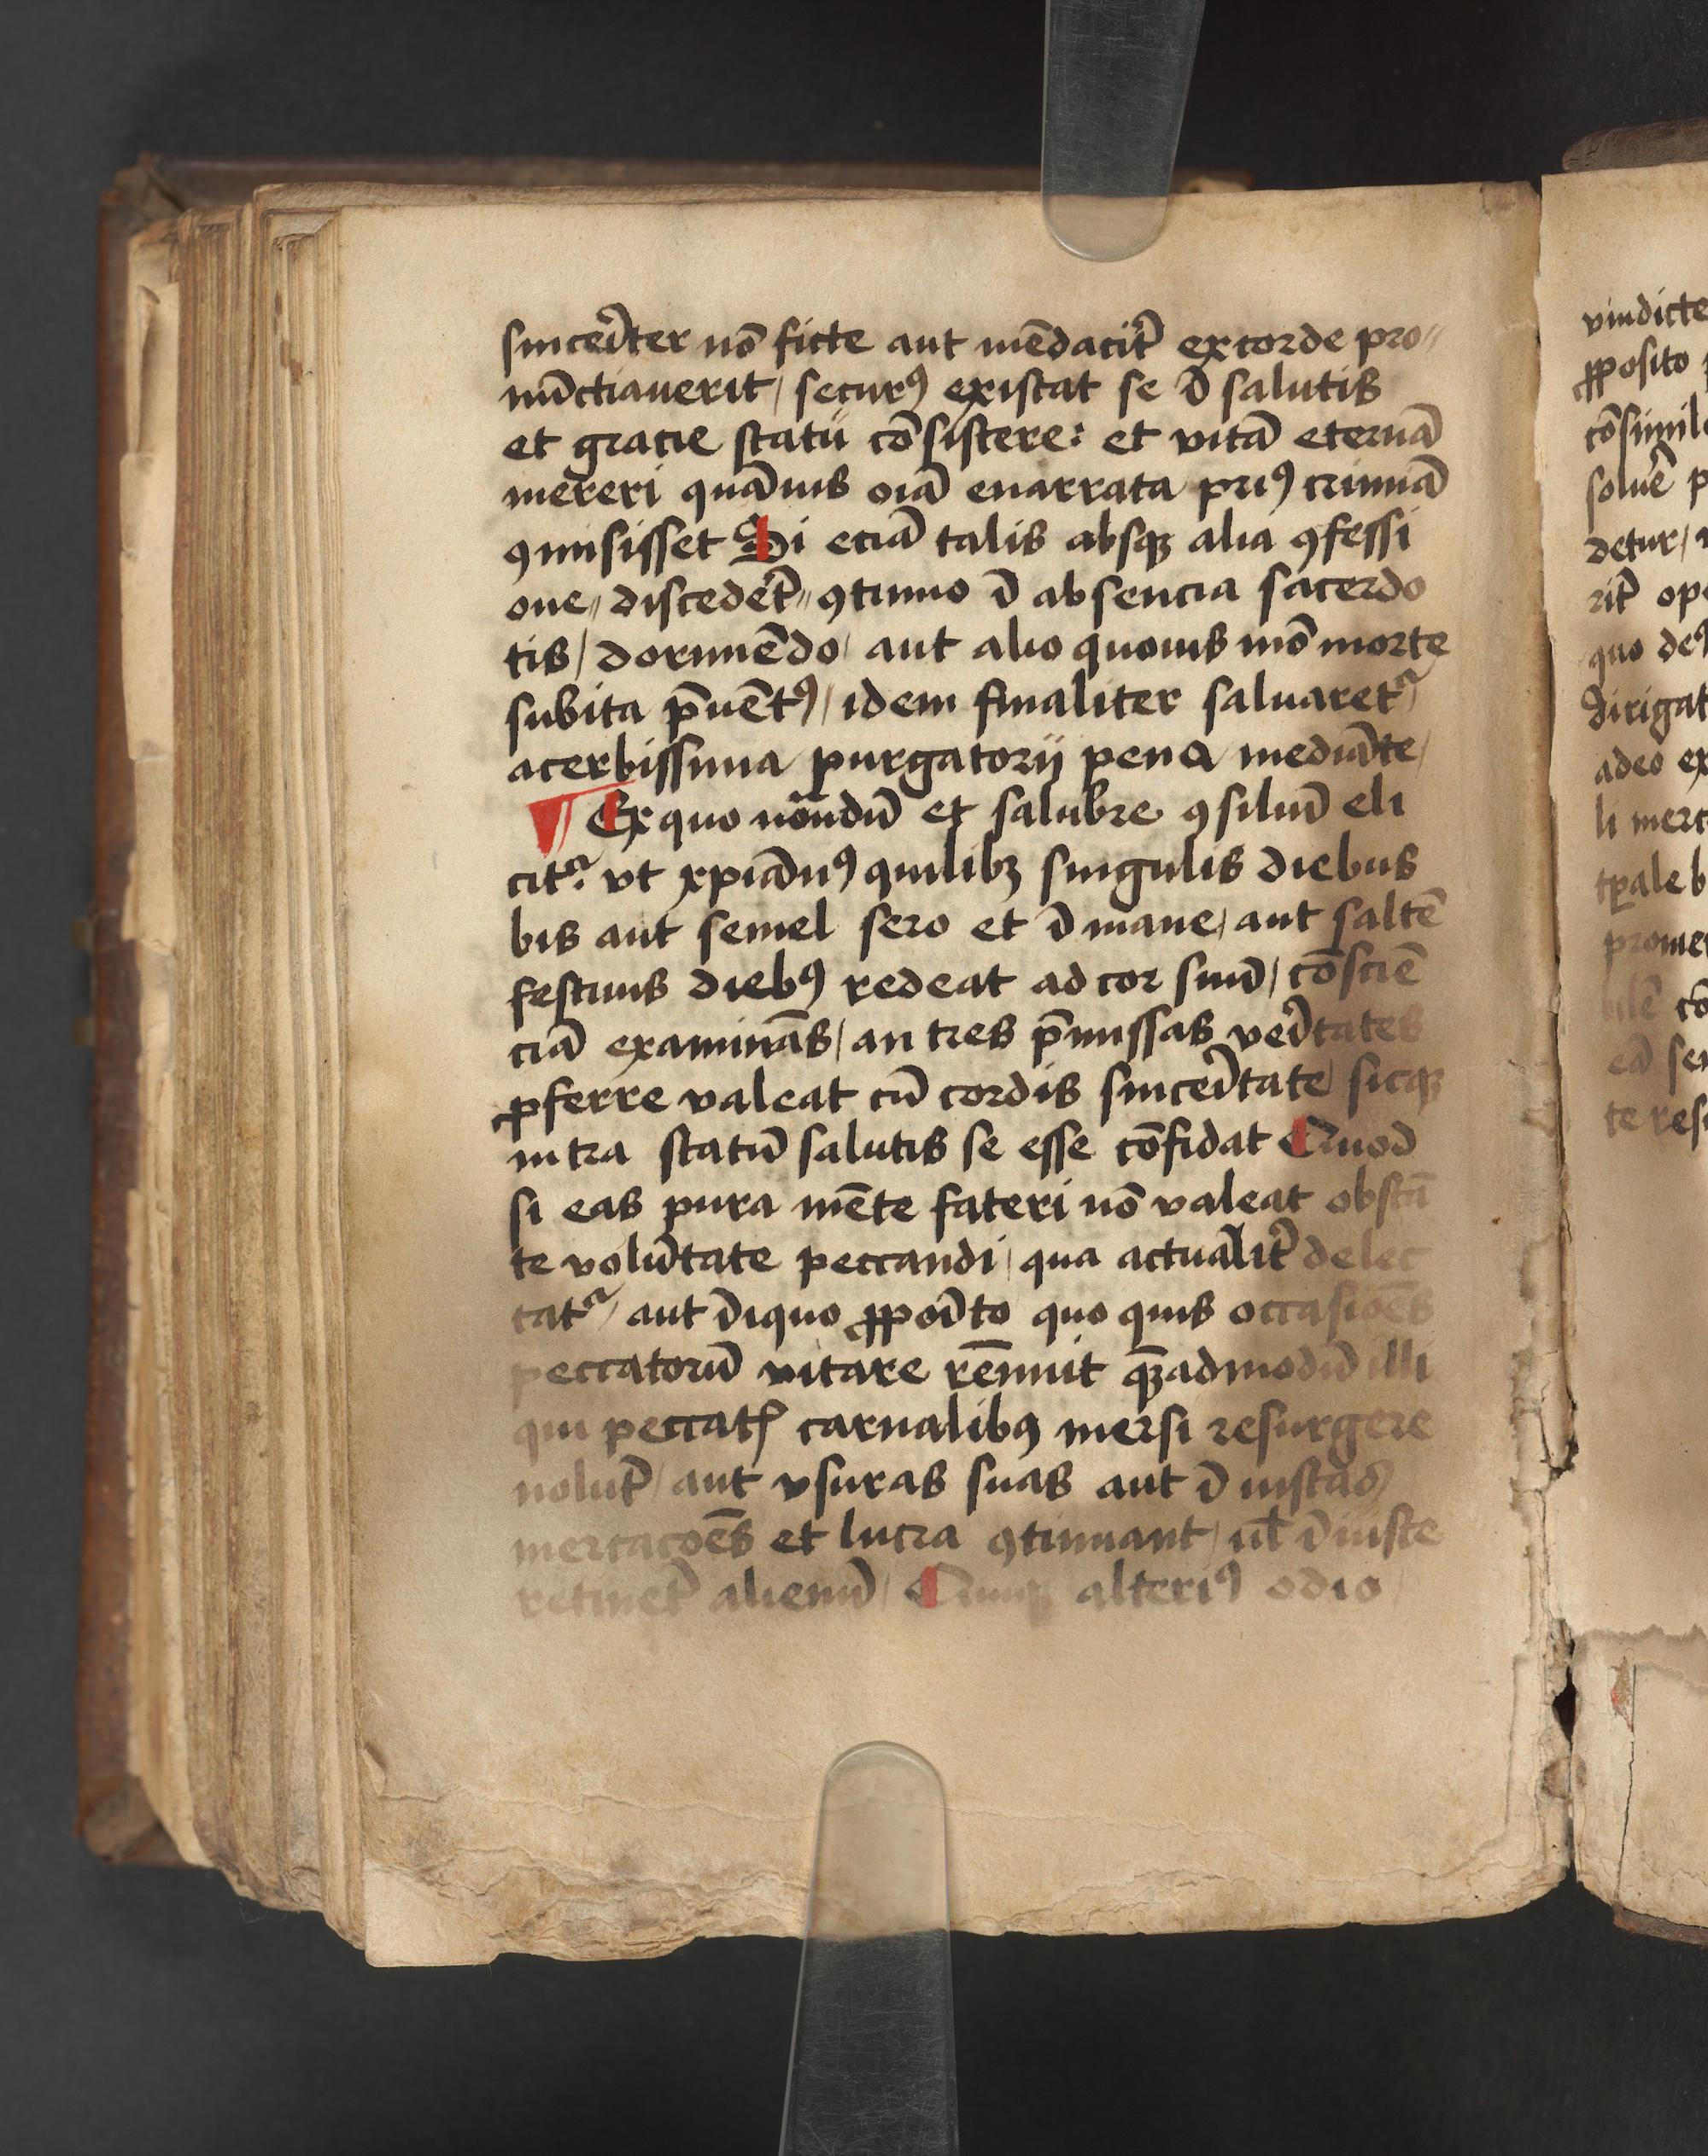 sincei̅ter no̅ ficte aut me̅dacit̅ ex corde pro〃
nu̅ctiauerit / securꝰ existat se i̅ salutis
et gracie statu co̅sistere: et vita̅ eterna̅
mereri qua̅uis oi̅a enarrata priꝰ crimi̅a
ꝯmisisset Si etia̅ talis absqꝫ alia ꝯfessi
one〃 discedet̅〃 ꝯtinuo i̅ absencia sacerdo
tis / dormie̅do / aut alio quouis mo̅ morte
subita p̅ue̅tꝰ / idem finaliter saluaretᷣ
acerbissima purgatorij pena media̅te /
¶ Ex quo no̅ndu̅ et salubre ꝯsiliu̅ eli
citᷣ: vt xp̅ianꝰ quilibꝫ singulis diebus
bis aut semel sero et i̅ mane / aut salte̅
festiuis diebꝰ redeat ad cor suu̅ / co̅scie̅
cia̅ examina̅s / an tres p̅missas vei̅tates
ꝓferre valeat cu̅ cordis sincei̅tate / sicqꝫ
intra statu̅ salutis se esse co̅fidat Quod
si eas pura me̅te fateri no̅ valeat obsta̅
te volu̅tate peccandi / qua actualit̅ delec
tatᷣ / aut i̅iquo ꝓpoi̅to quo quis occasioe̅s
peccatoru̅ vitare re̅nuit qꝫadmodu̅ illi
qui peccatꝭ carnalibꝰ mersi resurgere
nolut̅ / aut vsuras suas aut i̅iustas
mercacoe̅s et lucra ꝯtinuant / ul̅ i̅iuste
retinet̅ alienu̅ / Cumqꝫ alteriꝰ odio
vindicte
ꝓposito
co̅simil
solue̅ p
detur /
rit̅ ope
quo det̅
dirigat
adeo ex
li merc
tp̅ale b
prome
co̅
ea̅ se
te res